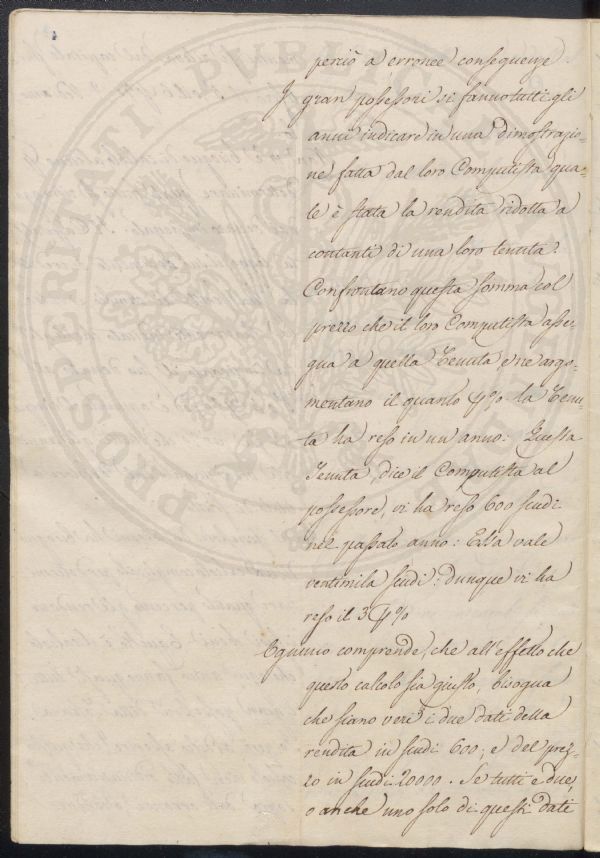 perciò a erronee conseguenze
I gran possessori si fanno tutti gli
anni indicare in una dimostrazio-
ne fatta dal loro Computista qua-
le è stata la rendita ridotta a
contanti di una loro tenuta.
Confrontano questa somma col
prezzo che il loro Computista asse-
gna a quella Tenuta e ne argo-
mentano il quanto p% la Tenu-
ta ha reso in un anno. Questa
Tenuta, dice il Computista al
possessore, vi ha reso 600 scudi
nel passato anno: Essa vale
ventimila scudi: dunque vi ha
reso il 3 p%
Ognuno comprende, che all'effetto che
questo calcolo sia giusto, bisogna
che siano veri i due dati della
rendita in scudi 600, e del prez-
zo in scudi 20000. Se tutti e due,
o anche uno solo di questi dati
PROSPERITATI PVBLICAE